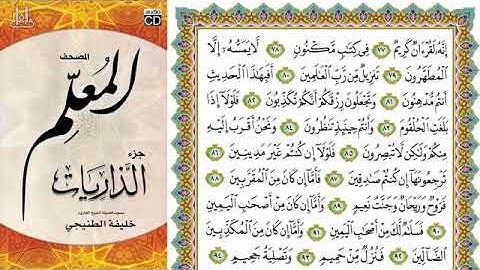 audio
CD
المصحف
المعلم
جزء
الذاريات
خليفة الطنيجي
إِنَّهُ لَقُرْءَانٌ كَرِيمٌ ٧٧ فِي كِتَٰبٍ مَّكْنُونٍ ٧٨ لَّا يَمَسُّهُ إِلَّا
الْمُطَهَّرُونَ ٧٩ تَنزِيلٌ مِّن رَّبِّ الْعَٰلَمِينَ ٨٠ أَفَبِهَٰذَا الْحَدِيثِ
أَنتُم مُّدْهِنُونَ ٨١ وَتَجْعَلُونَ رِزْقَكُمْ أَنَّكُمْ تُكَذِّبُونَ ٨٢ فَلَوْلَا إِذَا
بَلَغَتِ الْحُلْقُومَ ٨٣ وَأَنتُمْ حِينَئِذٍ تَنظُرُونَ ٨٤ وَنَحْنُ أَقْرَبُ إِلَيْهِ
مِنكُمْ وَلَٰكِن لَّا تُبْصِرُونَ ٨٥ فَلَوْلَا إِن كُنتُمْ غَيْرَ مَدِينِينَ ٨٦
تَرْجِعُونَهَا إِن كُنتُمْ صَٰدِقِينَ ٨٧ فَأَمَّا إِن كَانَ مِنَ الْمُقَرَّبِينَ ٨٨
فَرَوْحٌ وَرَيْحَانٌ وَجَنَّتُ نَعِيمٍ ٨٩ وَأَمَّا إِن كَانَ مِنْ أَصْحَٰبِ الْيَمِينِ ٩٠
فَسَلَٰمٌ لَّكَ مِنْ أَصْحَٰبِ الْيَمِينِ ٩١ وَأَمَّا إِن كَانَ مِنَ الْمُكَذِّبِينَ
الضَّالِّينَ ٩٢ فَنُزُلٌ مِّنْ حَمِيمٍ ٩٣ وَتَصْلِيَةُ جَحِيمٍ ٩٤